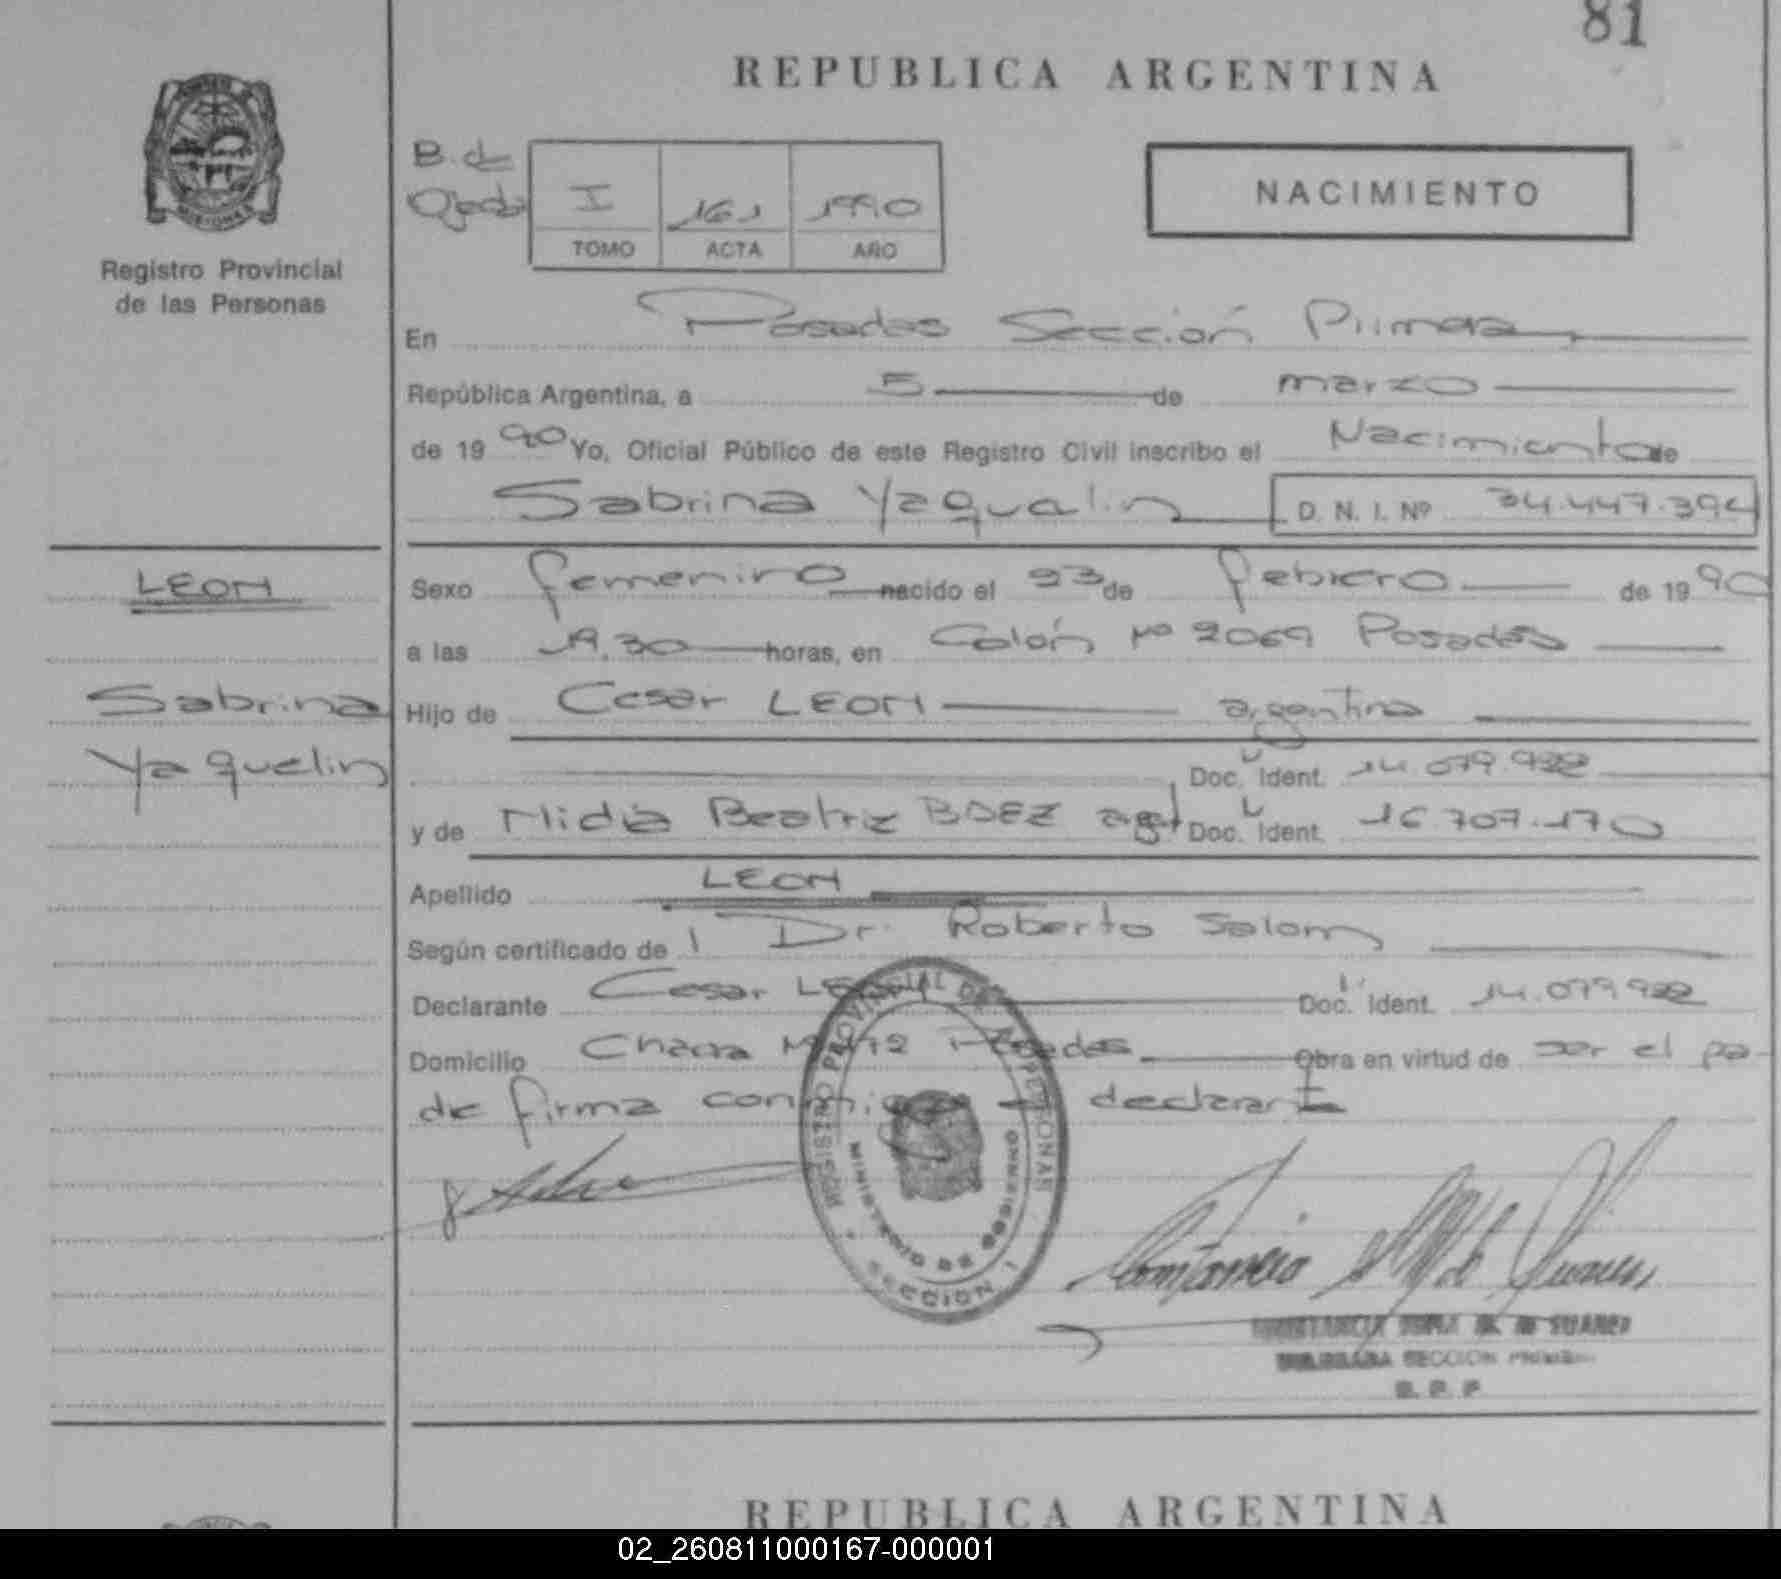 81
REPUBLICA ARGENTINA
B. de
Ojeda
I 161 1990
TOMO ACTA AÑO
NACIMIENTO
Registro Provincial
de las Personas
En Posadas Sección Primera
República Argentina, a 5 de marzo
de 1990 Yo, Oficial Público de este Registro Civil inscribo el Nacimiento de
Sabrina Yaquelin D. N. I. Nº 34.447.394
LEON
Sexo femenino nacido el 23 de febrero de 1990
a las 19.30 horas, en Colón Nº 2069 Posadas
Sabrina
Hijo de Cesar LEON argentino
Yaquelin
Doc. Ident. 14.079.922
y de Nidia Beatriz BAEZ arg. Doc. Ident. 16.707.170
Apellido LEON
Según certificado de l Dr. Roberto Salom
Declarante Cesar LEON Doc. Ident. 14.079.922
Domicilio Chacra Posadas Obra en virtud de ser el pa-
dre firma conmigo el declarante
REGISTRO PROVINCIAL DE LAS PERSONAS
MINISTERIO DE GOBIERNO
SECCION 1
SUAREZ
SECCION PRIMERA
R. P. P.
REPUBLICA ARGENTINA
02_260811000167-000001